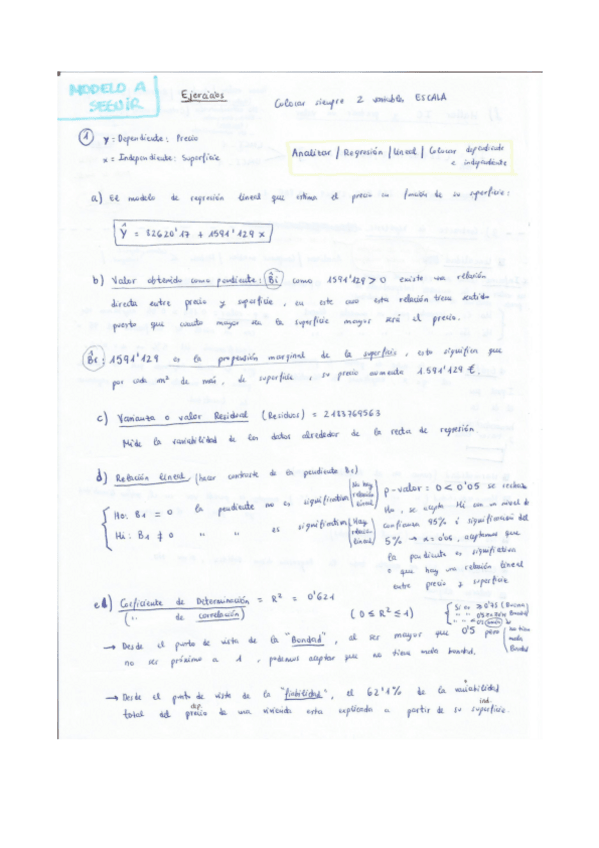 MODELO A
SEGUIR
Ejercicios
Colocar siempre 2 variables ESCALA
① y = Dependiente: Precio
x = Independiente: Superficie
Analizar / Regresión / Lineal / Colocar dependiente
e independiente
a) El modelo de regresión lineal que estima el precio en función de su superficie:
Ŷ = 82620'17 + 1591'129 x
b) Valor obtenido como pendiente: B̂i como 1591'129 > 0 existe una relación
directa entre precio y superficie, en este caso esta relación tiene sentido
puesto que cuanto mayor sea la superficie mayor será el precio.
1591'129 es la propensión marginal de la superficie, esto significa que
por cada m² de más, de superficie, su precio aumenta 1591'129 €.
c) Varianza o valor Residual (Residuos) = 2183769563
Mide la variabilidad de los datos alrededor de la recta de regresión.
d) Relación lineal (hacer contraste de la pendiente B1)
Ho: B1 = 0 la pendiente no es significativa (No hay relación lineal)
Hi: B1 ≠ 0 " " es significativa (Hay relac. lineal)
p-valor = 0 < 0'05 se rechaza
Ho, se acepta Hi con un nivel de
confianza 95% i significación del
5% → α = 0'05, aceptamos que
la pendiente es significativa
o que hay una relación lineal
entre precio y superficie
Coeficiente de Determinación = R² = 0'621
(" de correlación)
(0 ≤ R² ≤ 1)
→ Desde el punto de vista de la "Bondad", al ser mayor que 0'5 pero
no ser próximo a 1, podemos aceptar que no tiene mala bondad.
→ Desde el punto de vista de la "fiabilidad", el 62'1% de la variabilidad
total del precio de una vivienda esta explicada a partir de su superficie.
dep.
ind.